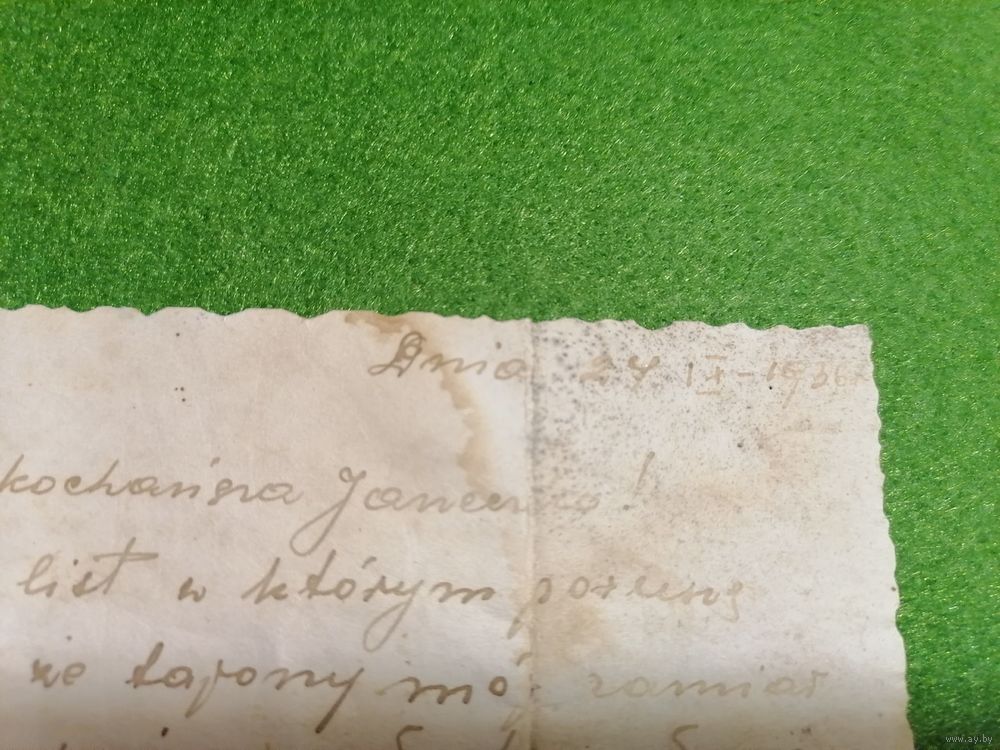 Dnia 24 IX-1936r
kochańsza Janeczko!
list w którym poruszę
że tajony mój zamiar
www.ay.by